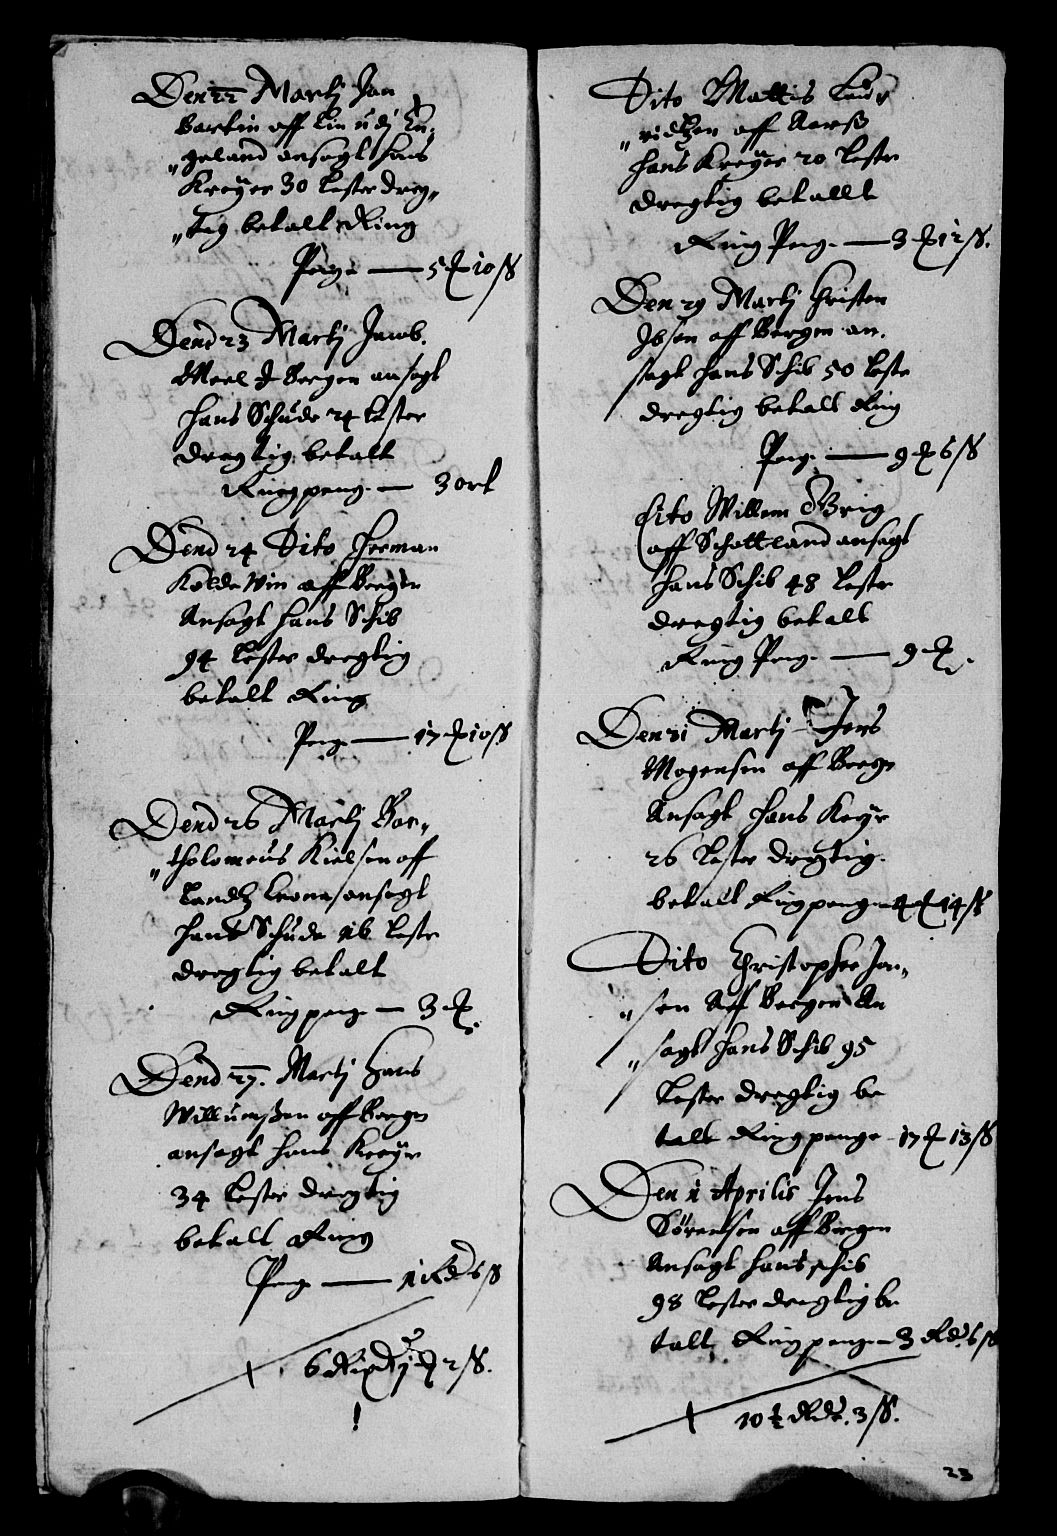 Den 22 Martij Jan
Bartin aff Lin udj En¬
"geland ansagt hans
Kreÿer 30 lester dreg"
"tig betalt Ring
Peng — 5 ₰ 10 ß
Dend 23 Martij Jacob.
Meel J Bergen ansagt
hans Schude 24 lester
dregtig betalt
Ringpeng — 3 ort
Dend 24 Dito Herman
Koldewin aff Bergen
Ansagt hans Schib
94 lester dregtig
betalt Ring
Peng — 17 ₰ 10 ß
Dend 26 Martij Bar¬
"tholomeus Nielsen off
ansagt
hans Schude 16 leste
dregtig betalt
Ringpeng — 3 ₰.
Dend 27. Martij Hans
Willumßen aff Bergen
ansagt hans Kreÿer
34 lester dregtig
betalt Ring
Peng — 1 Rd 6 ß
6 2 ß.
Dito Mattis Lau¬
"ridtzen aff
hans Kreÿer 20 leste
dregtig betallt
Ring Peng — 3 ₰ 12 ß.
Den 29 Martij Christen
Ibsen aff Bergen an¬
sagt hans Schib 50 leste
dregtig betalt Ring
Peng — 9 ₰ 6 ß
Dito Willem
aff Schottland ansagt
hans Schib 48 leste
dregtig betalt
Ring Peng — 9 ₰.
Den 31 Martij Jens
Mogensen aff Bergen
Ansagt hans Kreÿr
26 lester dregtig.
betalt Ringpeng 4 ₰ 14 ß
Dito Christopher Jan¬
"sen Aff Bergen An
"sagt hans Schib 95
lester dregtig be
talt Ringpenge 17 ₰ 13 ß
Den 1 Aprilis Jens
Sørensen aff Bergen
Ansagt hans schib
98 lester dregtig be
talt Ringpenge 3 Rdr. 6 ß
10 ½ Rdr. 3 ß.
23